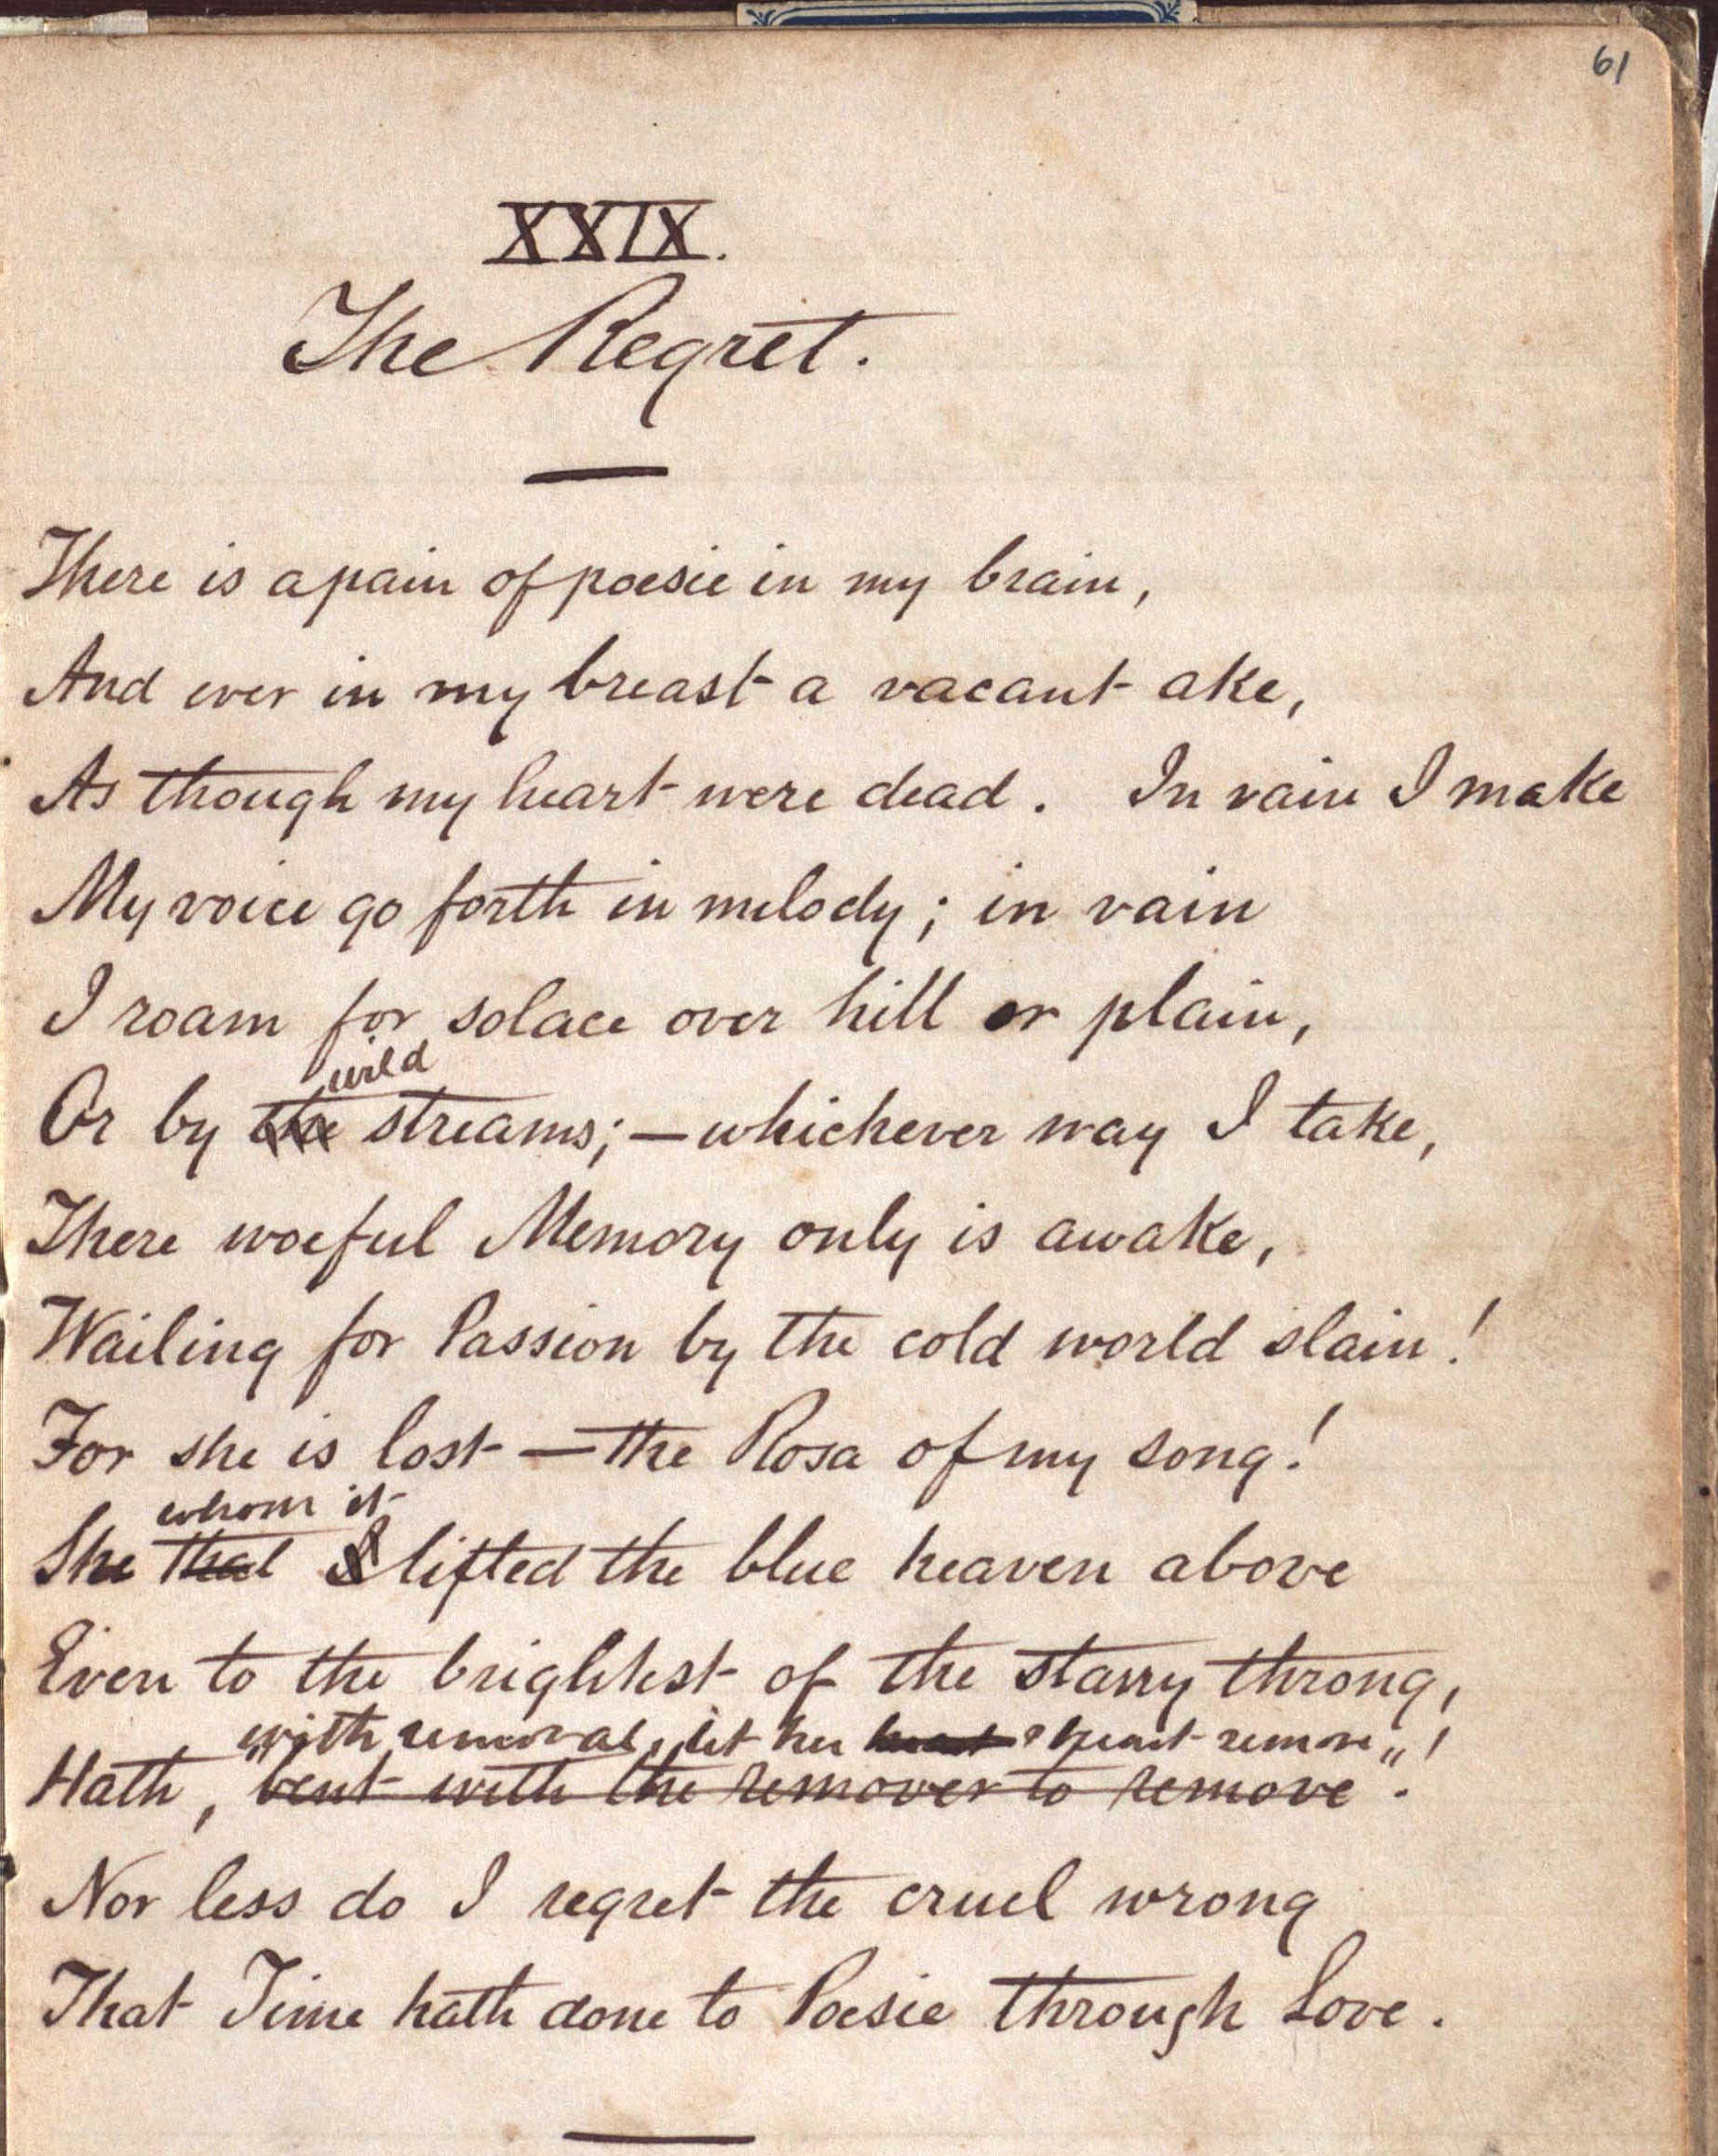 61
XXIX.
The Regret.
There is a pain of poesie in my brain,
And ever in my breast a vacant ake,
As though my heart were dead. In vain I make
My voice go forth in melody; in vain
I roam for solace over hill or plain,
wild
Or by the streams; — whichever way I take,
There woeful Memory only is awake,
Wailing for Passion by the cold world slain!
For she is lost — the Rosa of my song!
whom it
She that I lifted the blue heaven above
Even to the brightest of the starry throng,
with removal, let her heart remove"!
Hath, "bent with the remover to remove".
Nor less do I regret the cruel wrong
That Time hath done to Poesie through Love.